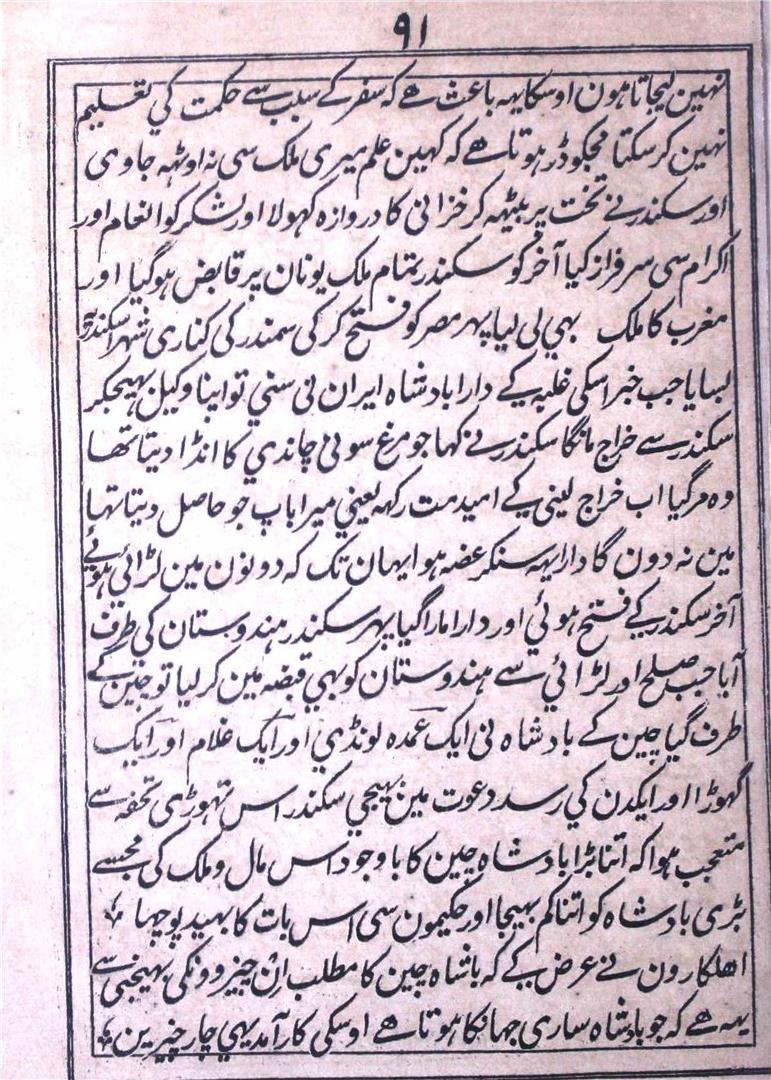 ۹۱
نہین لیجاتا ہون اوسکا یہہ باعث ہے کہ سفر کے سبب سے حکمت کي تعلیم
نہین کر سکتا مجکو ڈر ہوتا ہے کہ کہین علم میری ملک سی نہ اوٹہہ جاوی
اور سکندر نے تخت پر بیٹہہ کر خزانی کا دروازہ کہولا اور لشکر کو انعام اور
اکرام سی سرفراز کیا آخر کو سکندر تمام ملک یونان پر قابض ہو گیا اور
مغرب کا ملک بہي لی لیا پہر مصر کو فتح کر کی سمندر کی کناری شہر اسکندریہ
بسایا جب خبر اسکی غلبہ کے دارا بادشاہ ایران نی سني تو اپنا وکیل بہیجکر
سکندر سے خراج مانگا سکندر نے کہا جو مرغ سونی چاندي کا انڈا دیتا تھا
وہ مر گیا اب خراج لینی کے امید مت رکہہ یعني میرا باپ جو حاصل دیتا تہا
مین نہ دون گا دارا یہہ سنکر غضہ ہوا یہان تک کہ دونون مین لڑائي ہوئے
آخر سکندر کے فتح ہوئي اور دارا مارا گیا پہر سکندر ہندوستان کی طرف
آیا جب صلح اور لڑائي سے ہندوستان کو بہي قبضہ مین کر لیا تو چین کے
طرف گیا چین کے بادشاہ نی ایک عمدہ لونڈي اور ایک غلام اور ایک
گہوڑا اور ایکدن کي رسد دعوت مین بہیجي سکندر اس تہوڑی تحفہ سے
متعجب ہوا کہ اتنا بڑا بادشاہ چین کا باوجود اس مال و ملک کی مجسے
بڑی بادشاہ کو اتنا کم بہیجا اور حکیمون سی اس بات کا بہید پوچہا
اهلکارون نے عرض کے کہ باشاہ چین کا مطلب اِن چیزوونکی بہیجنی سے
یہہ ھے کہ جو بادشاہ ساری جہانکا ہوتا ھے اوسکی کارآمد یہي چار چیزین